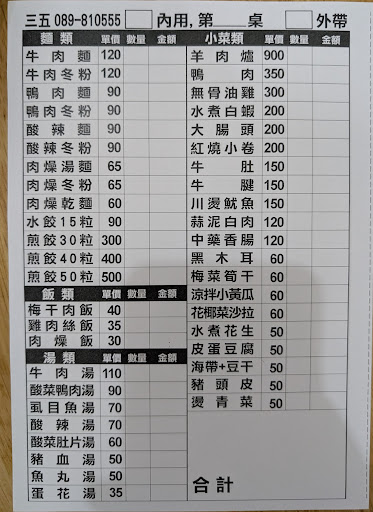 三五 089-810555 內用, 第 桌 外帶
麵類 單價 數量 金額
牛肉麵 120
牛肉冬粉 120
鴨肉麵 90
鴨肉冬粉 90
酸辣麵 90
酸辣冬粉 90
肉燥湯麵 65
肉燥冬粉 65
肉燥乾麵 60
水餃15粒 90
煎餃30粒 300
煎餃40粒 400
煎餃50粒 500
飯類 單價 數量 金額
梅干肉飯 40
雞肉絲飯 35
肉燥飯 30
湯類 單價 數量 金額
牛肉湯 110
酸菜鴨肉湯 90
虱目魚湯 70
酸辣湯 70
酸菜肚片湯 60
豬血湯 50
魚丸湯 50
蛋花湯 35
小菜類 單價 數量 金額
羊肉爐 900
鴨肉 350
無骨油雞 300
水煮白蝦 200
大腸頭 200
紅燒小卷 200
牛肚 150
牛腱 150
川燙魷魚 150
蒜泥白肉 120
中藥香腸 120
黑木耳 60
梅菜筍干 60
涼拌小黃瓜 60
花椰菜沙拉 60
水煮花生 50
皮蛋豆腐 50
海帶+豆干 50
豬頭皮 50
燙青菜 50
合計